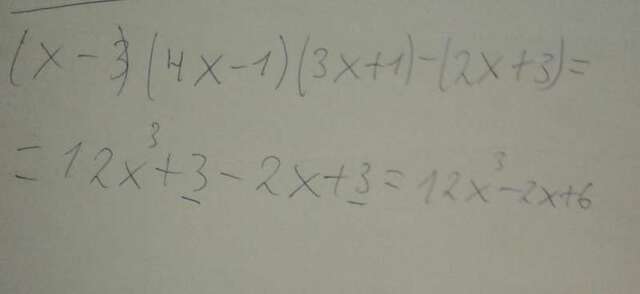 (x-3)(4x-1)(3x+1)-(2x+3)=
=12x³+3-2x+3=12x³-2x+6